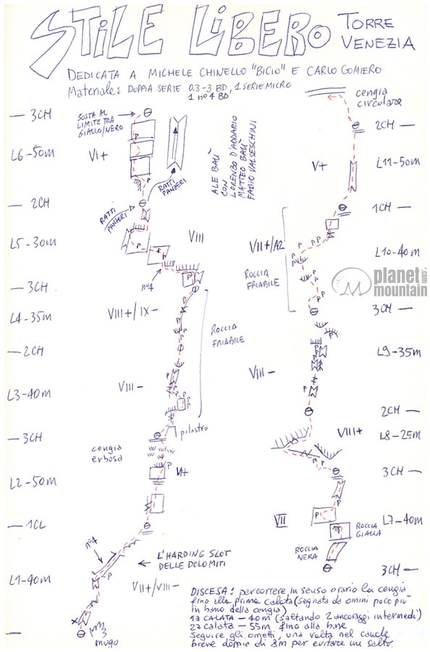 STILE LIBERO TORRE VENEZIA
DEDICATA A MICHELE CHINELLO "BICIO" E CARLO GOMIERO
Materiale: DOPPIA SERIE 0.3-3 BD, 1 SERIE MICRO
1 n°4 BD
cengia
circolare
3CH
SOSTA AL
LIMITE TRA
GIALLO/NERO
L6-50m
VI+
TRATTI
PANCERI
2CH
L5-30m
VIII
n°4
3CH
L4-35m
VIII+/IX-
ROCCIA
FRIABILE
2CH
L3-40m
VIII-
pilastro
3CH
cengia
erbosa
L2-50m
VI+
1CL
n°4
← L'HARDING SLOT
DELLE DOLOMITI
L1-40m
VII+/VIII-
mugo
ALE BAÙ
CON
LORENZO D'ADDARIO
MATTEO BAÙ
2CH
V+
L11-50m
1CH
VII+/A2
L10-40m
ROCCIA
FRIABILE
planet
mountain
3CH
L9-35m
VIII-
2CH
VIII+
L8-25m
3CH
VII
L7-40m
ROCCIA
GIALLA
ROCCIA
NERA
3CH
DISCESA: percorrere in senso orario la cengia
fino alla prima calata (segnata da omini poco più
in basso della cengia)
1a CALATA - 40m (saltando 2 ancoraggi intermedi)
2a calata - 55m fino alla base
Seguire gli ometti, una volta nel canale
breve doppia di 8m per evitare un salto.